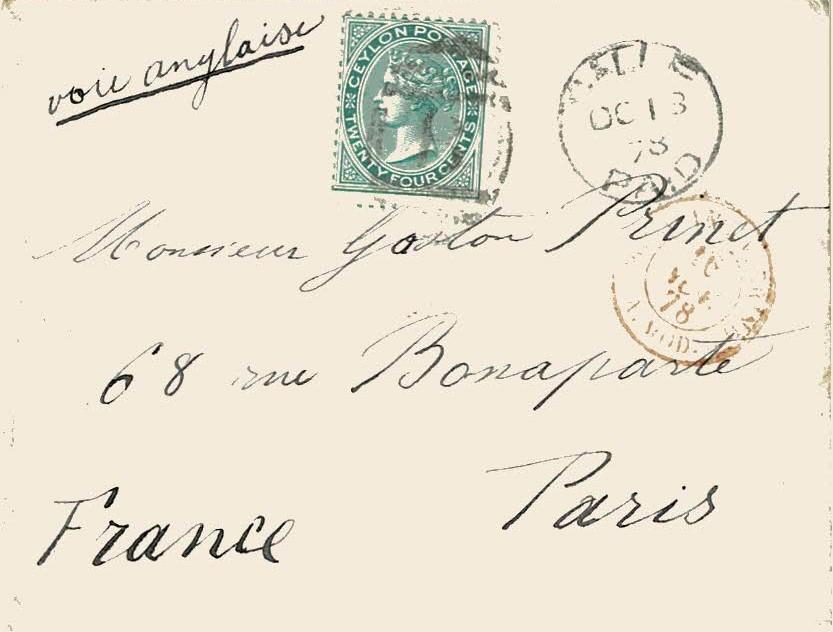 voie anglaise
CEYLON POSTAGE
TWENTY FOUR CENTS
OC 13
78
PAID
Monsieur Gaston Prinet
78
68 rue Bonaparte
Paris
France